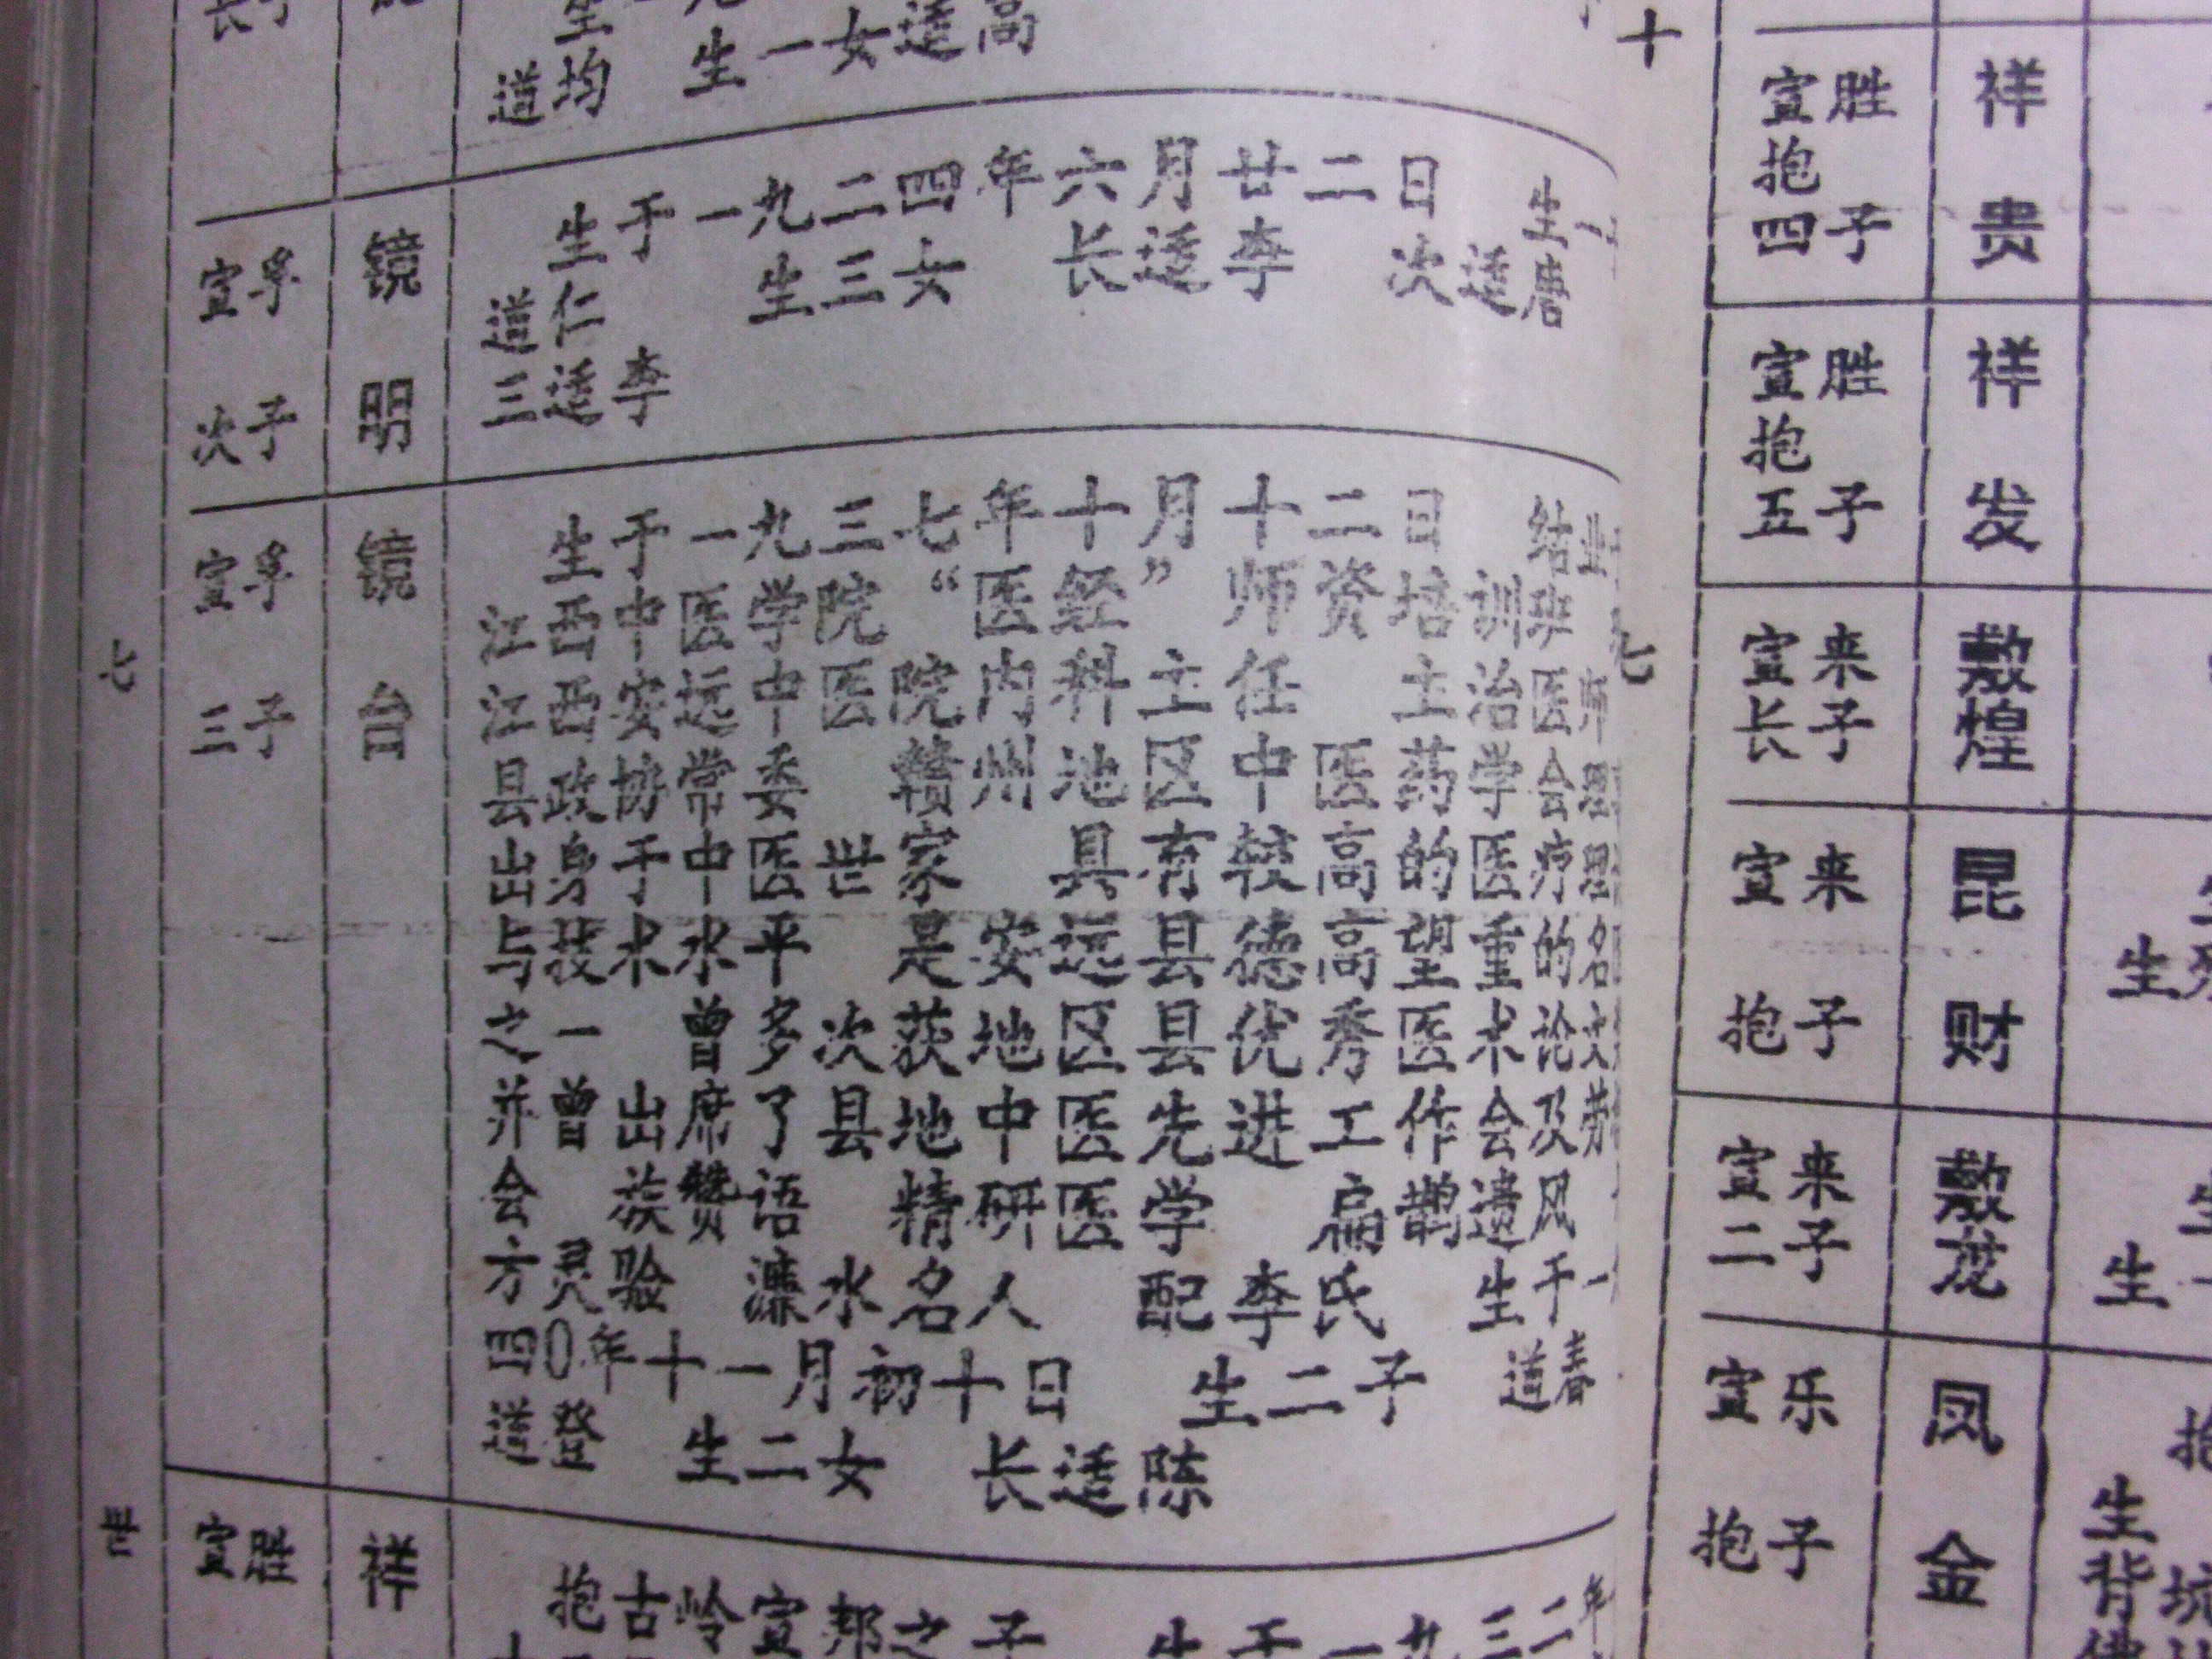 长子
生一女适高
道均
宣孚
次子
镜明
生于一九二四年六月廿二日 生
生三女 长适李 次适唐
道仁
三适李
宣孚
三子
镜台
生于一九三七年十月十二日 结业
江西中医学院“医经”师资培训班
江西安远中医院内科主任 主治医师
县政协常委 赣州地区中医药学会理
出身于中医世家 具有较高的医疗理
与技术水平 是安远县德高望重的名
之一 曾多次获地区县优秀医术论文
并曾出席了县地中医先进工作会及劳
会 族赞语 精研医学 扁鹊遗风
方灵验 濂水名人 配李氏 生于一
四〇年十一月初十日 生二子 道春
道登 生二女 长适陈
宣胜
祥
抱古岭宣邦之子 生于一九三二年
七
十
七
宣胜
抱
四子
祥贵
宣胜
抱
五子
祥发
宣来
长子
敷煌
宣来
抱子
昆财
生
宣来
二子
敷茂
生
宣乐
抱子
凤金
生
背